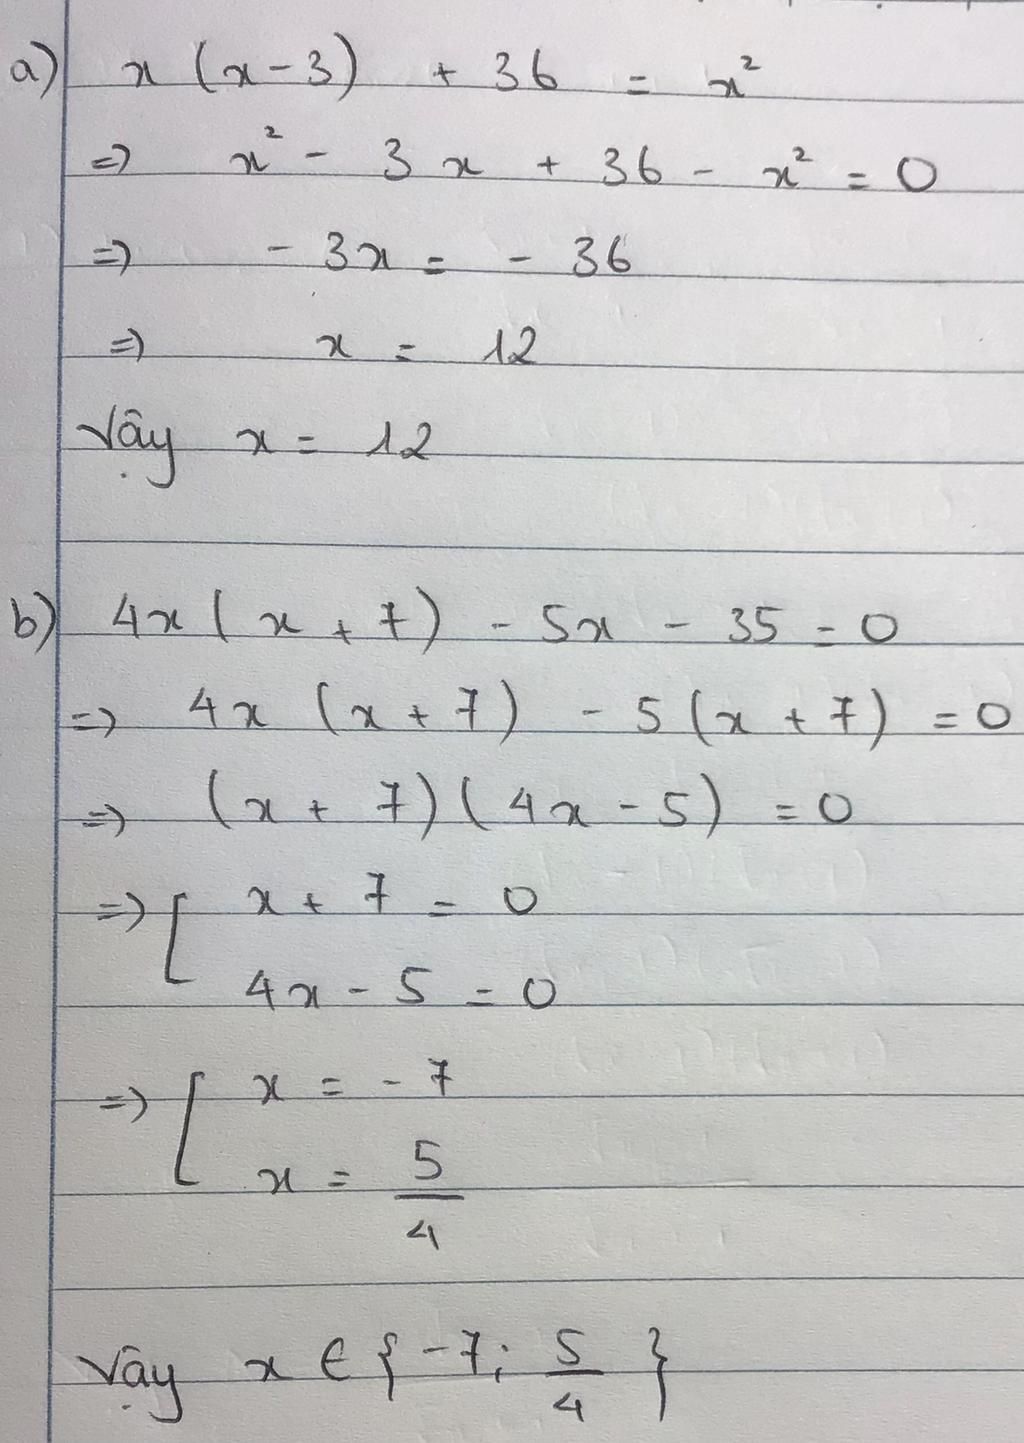 a) x (x - 3) + 36 = x²
=> x² - 3x + 36 - x² = 0
=> - 3x = - 36
=> x = 12
Vậy x = 12
b) 4x ( x + 7) - 5x - 35 = 0
=> 4x (x + 7) - 5 (x + 7) = 0
=> (x + 7) ( 4x - 5) = 0
=> [ x + 7 = 0
4x - 5 = 0
=> [ x = - 7
x = 5/4
Vậy x ∈ { -7; 5/4 }